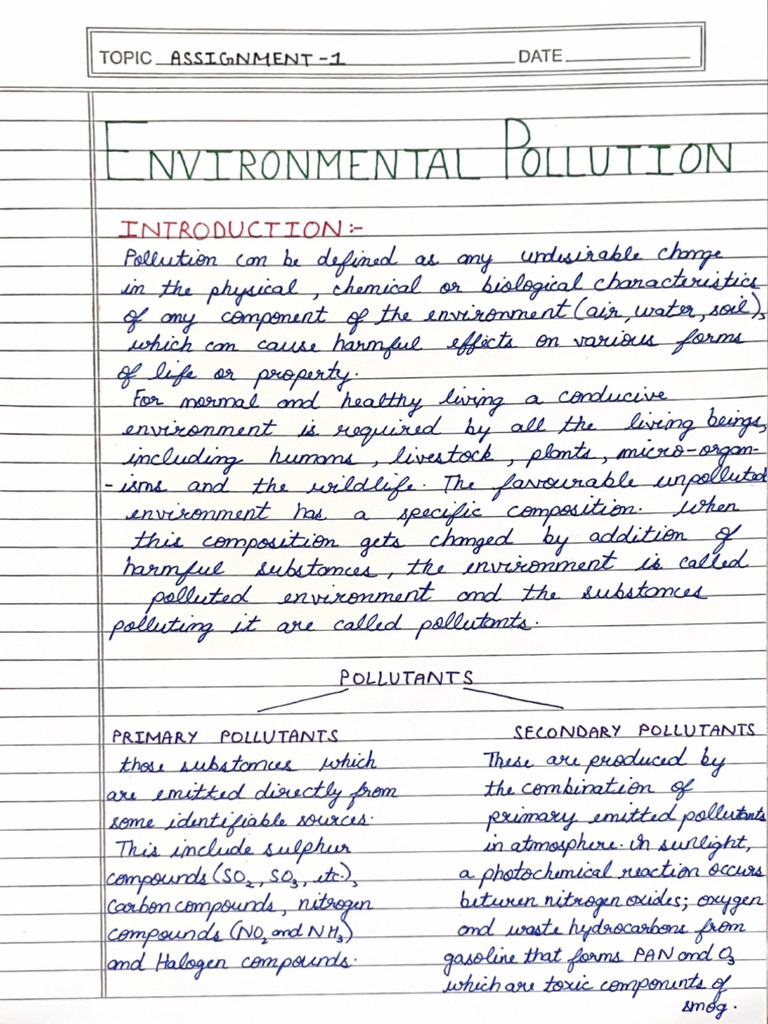 TOPIC ASSIGNMENT-1 DATE
ENVIRONMENTAL POLLUTION
INTRODUCTION:-
Pollution can be defined as any undesirable change
in the physical, chemical or biological characteristics
of any component of the environment (air, water, soil),
which can cause harmful effects on various forms
of life or property.
For normal and healthy living a conducive
environment is required by all the living beings,
including humans, livestock, plants, micro-organ-
-isms and the wildlife. The favourable unpolluted
environment has a specific composition. When
this composition gets changed by addition of
harmful substances, the environment is called
polluted environment and the substances
polluting it are called pollutants.
POLLUTANTS
PRIMARY POLLUTANTS
those substances which
are emitted directly from
some identifiable sources.
This include sulphur
compounds (SO₂, SO₃, etc.),
Carbon compounds, nitrogen
compounds (NO₂ and NH₃)
and Halogen compounds.
SECONDARY POLLUTANTS
These are produced by
the combination of
primary emitted pollutants
in atmosphere. In sunlight,
a photochemical reaction occurs
between nitrogen oxides; oxygen
and waste hydrocarbons from
gasoline that forms PAN and O₃
which are toxic components of
smog.